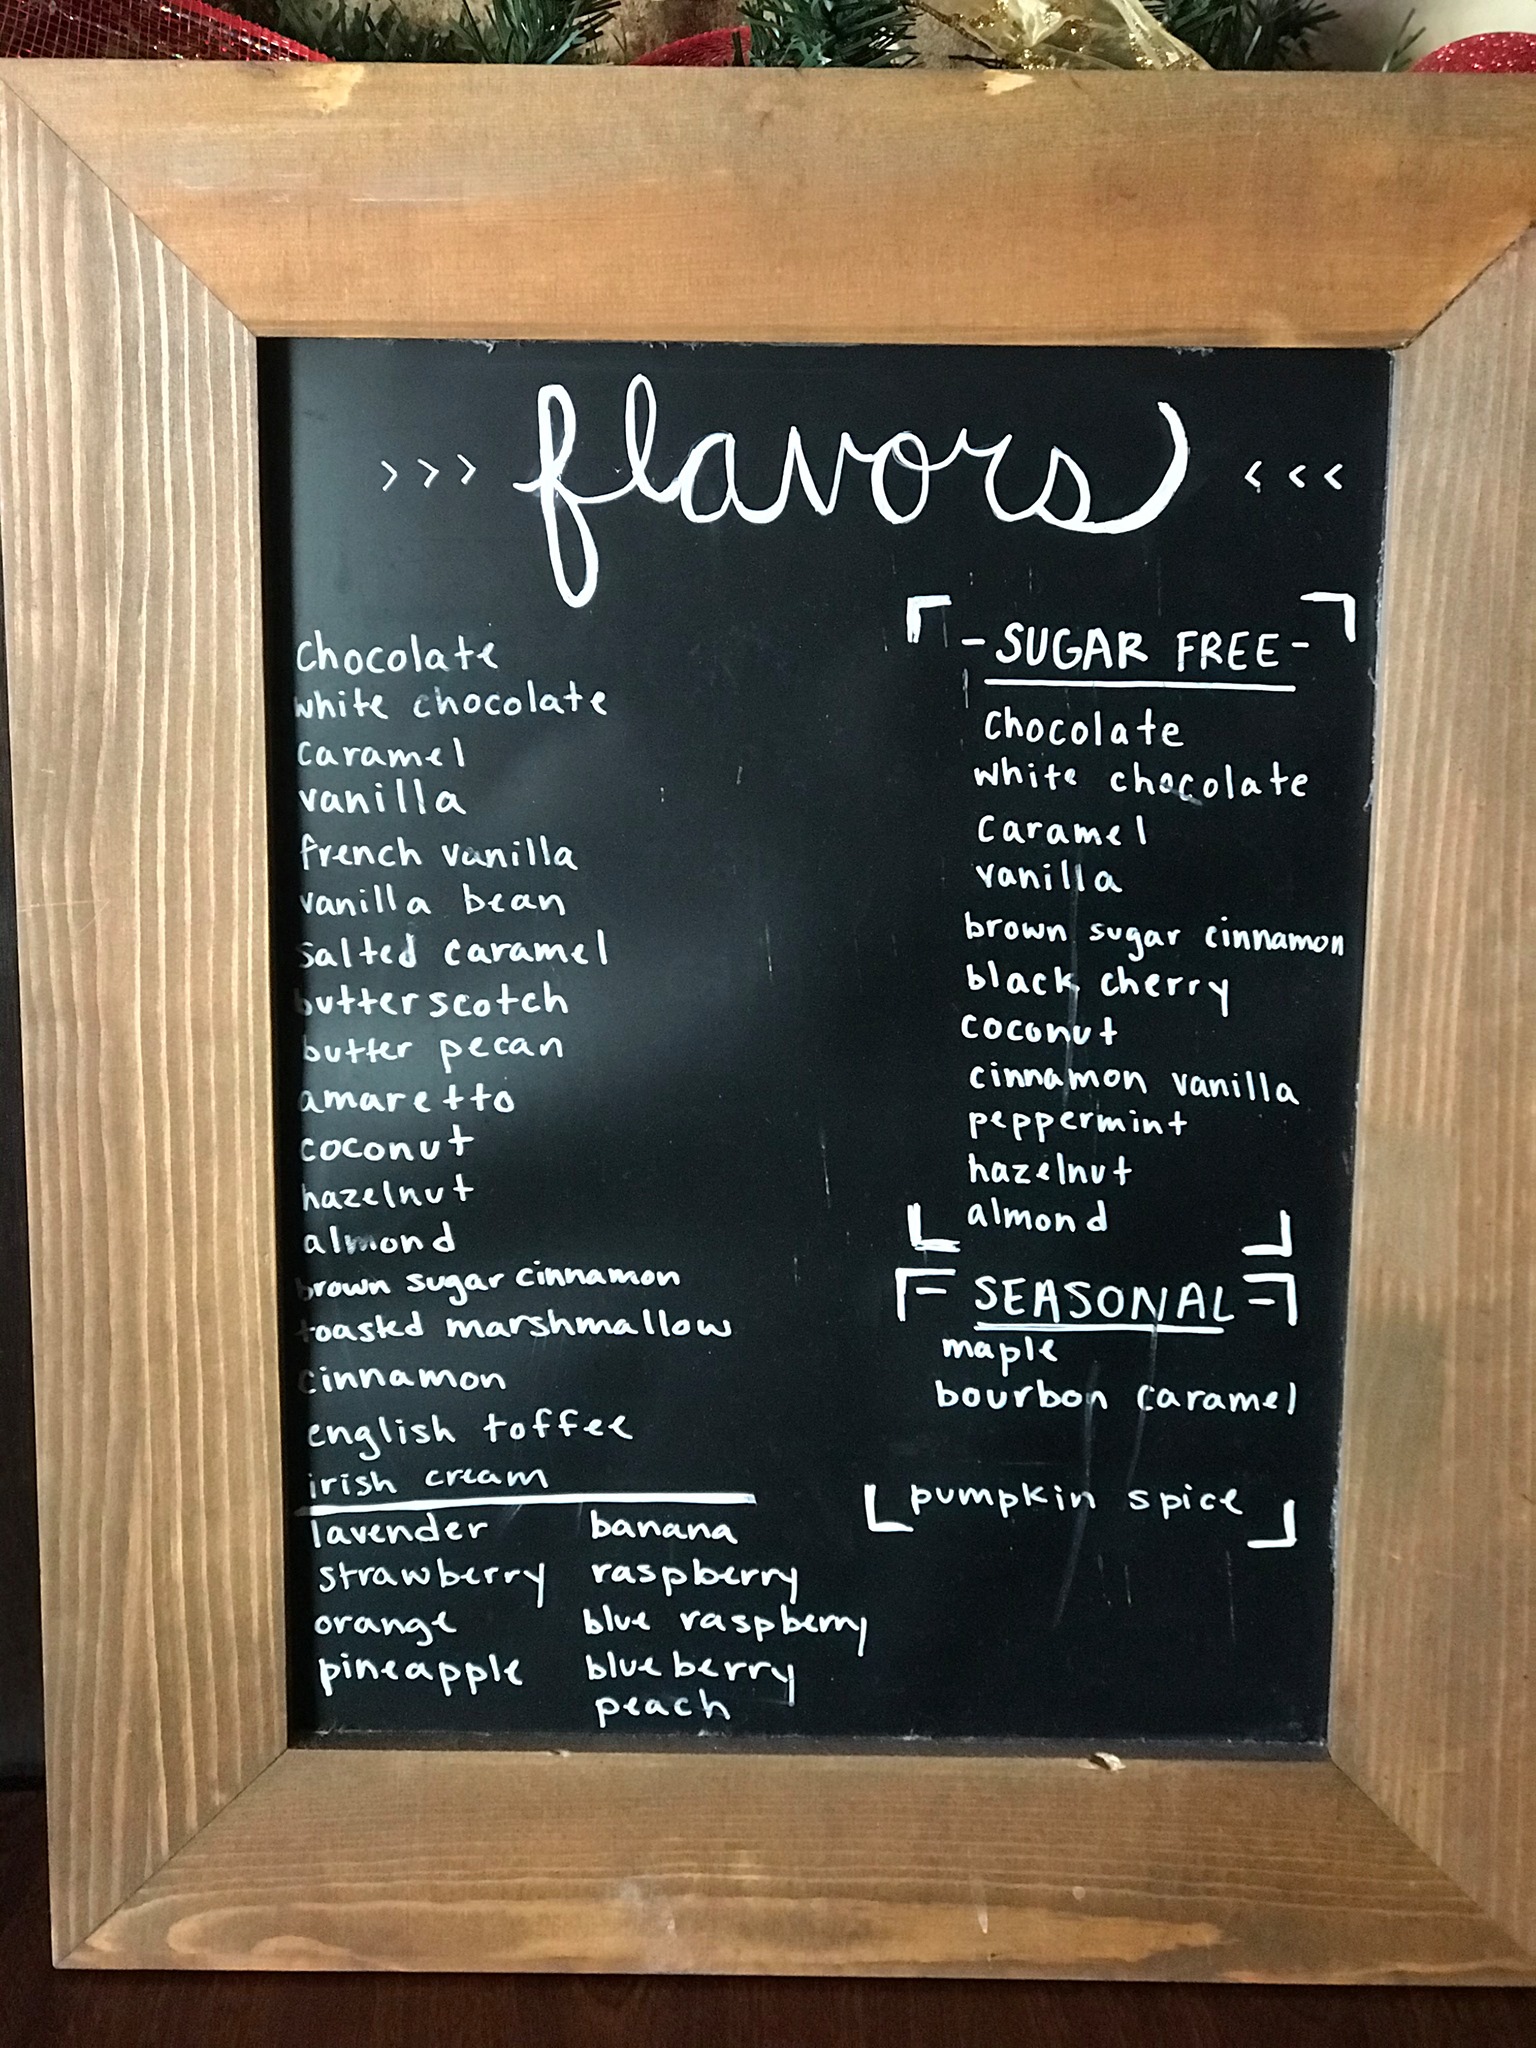 >>> flavors <<<
chocolate
white chocolate
caramel
vanilla
french vanilla
vanilla bean
salted caramel
butterscotch
butter pecan
amaretto
coconut
hazelnut
almond
brown sugar cinnamon
toasted marshmallow
cinnamon
english toffee
irish cream
lavender
strawberry
orange
pineapple
banana
raspberry
blue raspberry
blueberry
peach
- SUGAR FREE -
chocolate
white chocolate
caramel
vanilla
brown sugar cinnamon
black cherry
coconut
cinnamon vanilla
peppermint
hazelnut
almond
- SEASONAL -
maple
bourbon caramel
pumpkin spice